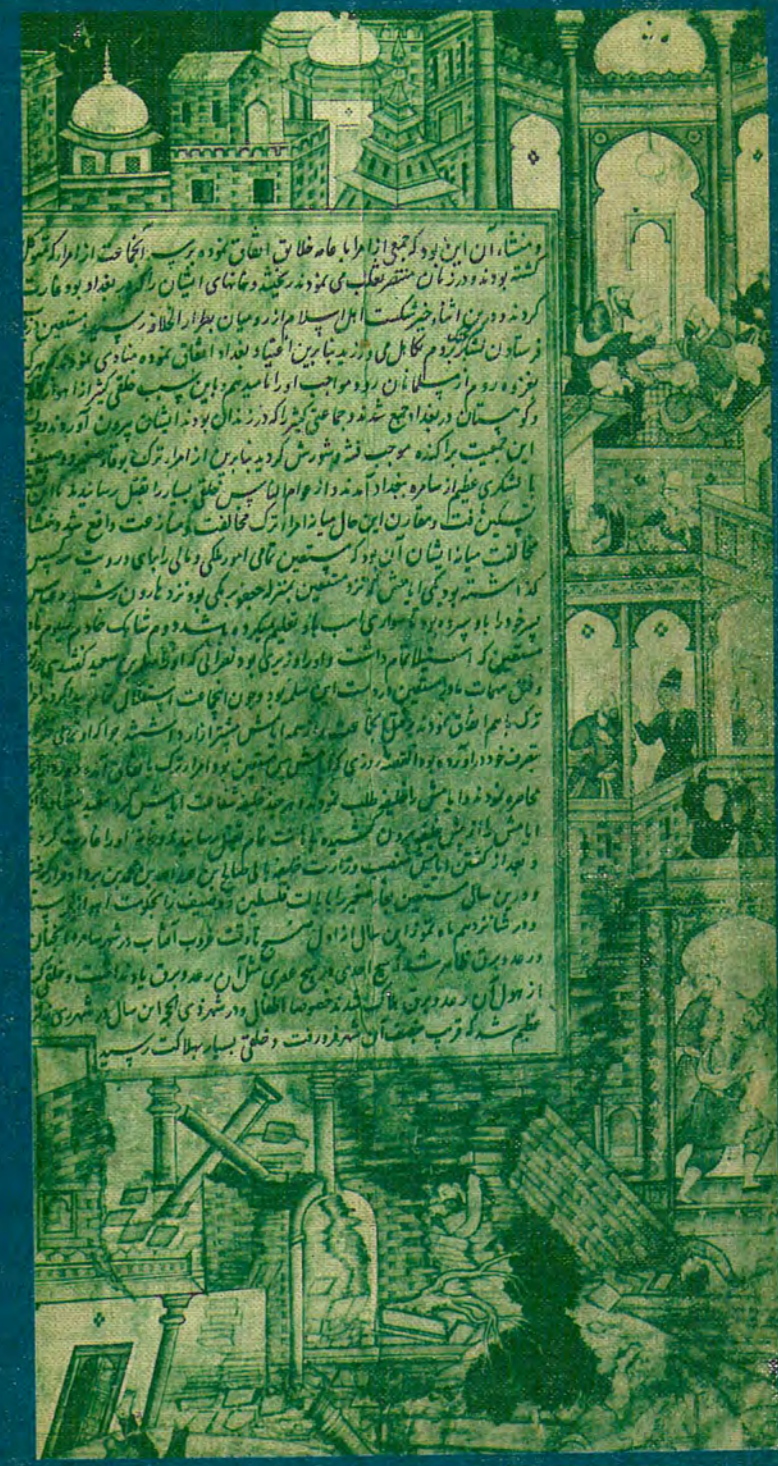 و منشاء آن این بود که جمعی از امرا با عامه خلایق اتفاق نموده بر انجماعت از امرا که
کشته بودند و در زمان منتصر تغلب می نمودند ریخته و خانهای ایشان را که در بغداد بود غارت
کردند و درین اثنا خبر شکست اهل اسلام از رومیان بدار الخلافه رسید مستعین
فرستادن لشکر بروم تکاهل می ورزید بنابرین اغنیاء بغداد اتفاق نموده منادی نمودند که هر
بغزوه روم از مسلمانان رود مواجب او را ما میدهیم باین سبب خلقی کثیر از اهواز
و کوهستان در بغداد جمع شدند و جماعتی کثیر را که در زندان بودند ایشان بیرون آوردند
این جمعیت پراکنده موجب فتنه و شورش گردید بنابرین از امراء ترک
با لشکری عظیم از سامره ببغداد آمدند و از عوام الناس خلقی بسیار را بقتل رسانیدند
تسکین یافت و مقارن این حال میانه امراء ترک مخالفت و منازعت واقع شد و منشاء
مخالفت میانه ایشان آن بود که مستعین تمامی امور ملکی و مالی را بای در ویت سه کس
گذاشته بود یکی اتامش که نزد مستعین بمنزله جعفر برمکی بود نزد هارون رشید و
پسر خود را باو سپرده بود تا سواری اسب باو تعلیم میکرده باشد دوم شاهک خادم سیوم
مستعین که استیلا تمام داشت و او را وزیری بود نصرانی که او را سلمه بن سعید گفتندی
و فتق مهمات مادر مستعین در دست این سلمه بود و چون انجماعت استقلال تمام پیدا کردند
ترک با هم اتفاق نمودند از همه اتامش بیشتر آزار داشتند چرا که او
بتصرف خود در آورده بود القصه روزی که اتامش پیش مستعین بود امراء ترک
محاصره نمودند و اتامش را از خلیفه طلب نمودند هر چند خلیفه شفاعت اتامش کرد مفید
اتامش را از پیش خلیفه بیرون کشیده بقتل رسانیدند و خانه او را غارت کردند
و بعد از کشتن اتامش منصب وزارت خلیفه بابی صالح بن عبد الله بن محمد بن یزداد
و درین سال مستعین بغاء صغیر را بایالت فلسطین و وصیف را بحکومت اهواز
و در شانزدهم ماه تموز این سال از اول صبح تا وقت غروب آفتاب در شهر سامره
و رعد و برق ظاهر شد که هیچ احدی در هیچ عصری مثل آن رعد و برق یاد نداشت و خلقی
از هول آن رعد و برق هلاک شدند خصوصا اطفال و در شهر ذی الحجه این سال در شهر ری
عظیم شد که قریب بنصف آن شهر فرو رفت و خلقی بسیار بهلاکت رسید